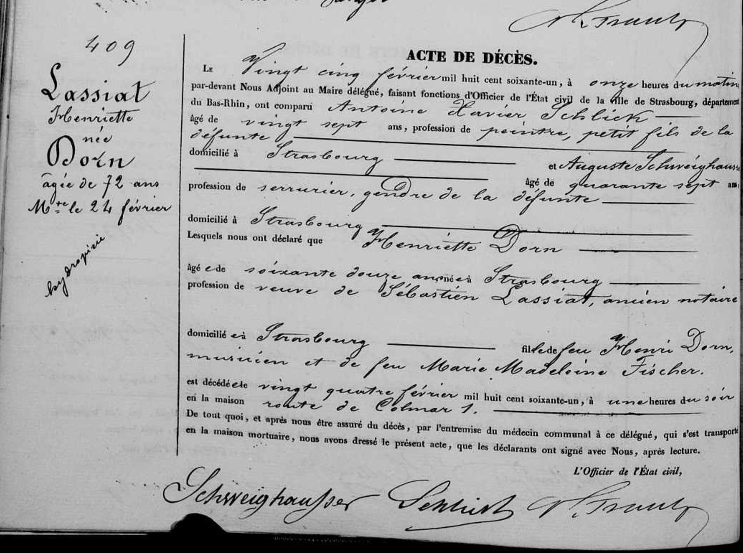 409
Lassiat
Henriette
née
Dorn
âgée de 72 ans
Mte le 24 février
hydropisie
ACTE DE DÉCÈS.
Le Vingt cinq février mil huit cent soixante-un, à onze heures du matin
par-devant Nous Adjoint au Maire délégué, faisant fonctions d'Officier de l'État civil de la ville de Strasbourg, département
du Bas-Rhin, ont comparu Antoine Xavier Schlick
âgé de vingt sept ans, profession de peintre, petit fils de la
défunte
domicilié à Strasbourg et Auguste Schweighausser
âgé de quarante sept ans
profession de serrurier, gendre de la défunte
domicilié à Strasbourg
Lesquels nous ont déclaré que Henriette Dorn
âgée de soixante douze ans née à Strasbourg
profession de veuve de Sébastien Lassiat, ancien notaire
domiciliée à Strasbourg fille de feu Henri Dorn,
musicien et de feu Marie Madeleine Fischer.
est décédée le vingt quatre février mil huit cent soixante-un, à une heures du soir
en la maison route de Colmar 1.
De tout quoi, et après nous être assuré du décès, par l'entremise du médecin communal à ce délégué, qui s'est transporté
en la maison mortuaire, nous avons dressé le présent acte, que les déclarants ont signé avec Nous, après lecture.
L'Officier de l'État civil,
Schweighausser Schlick